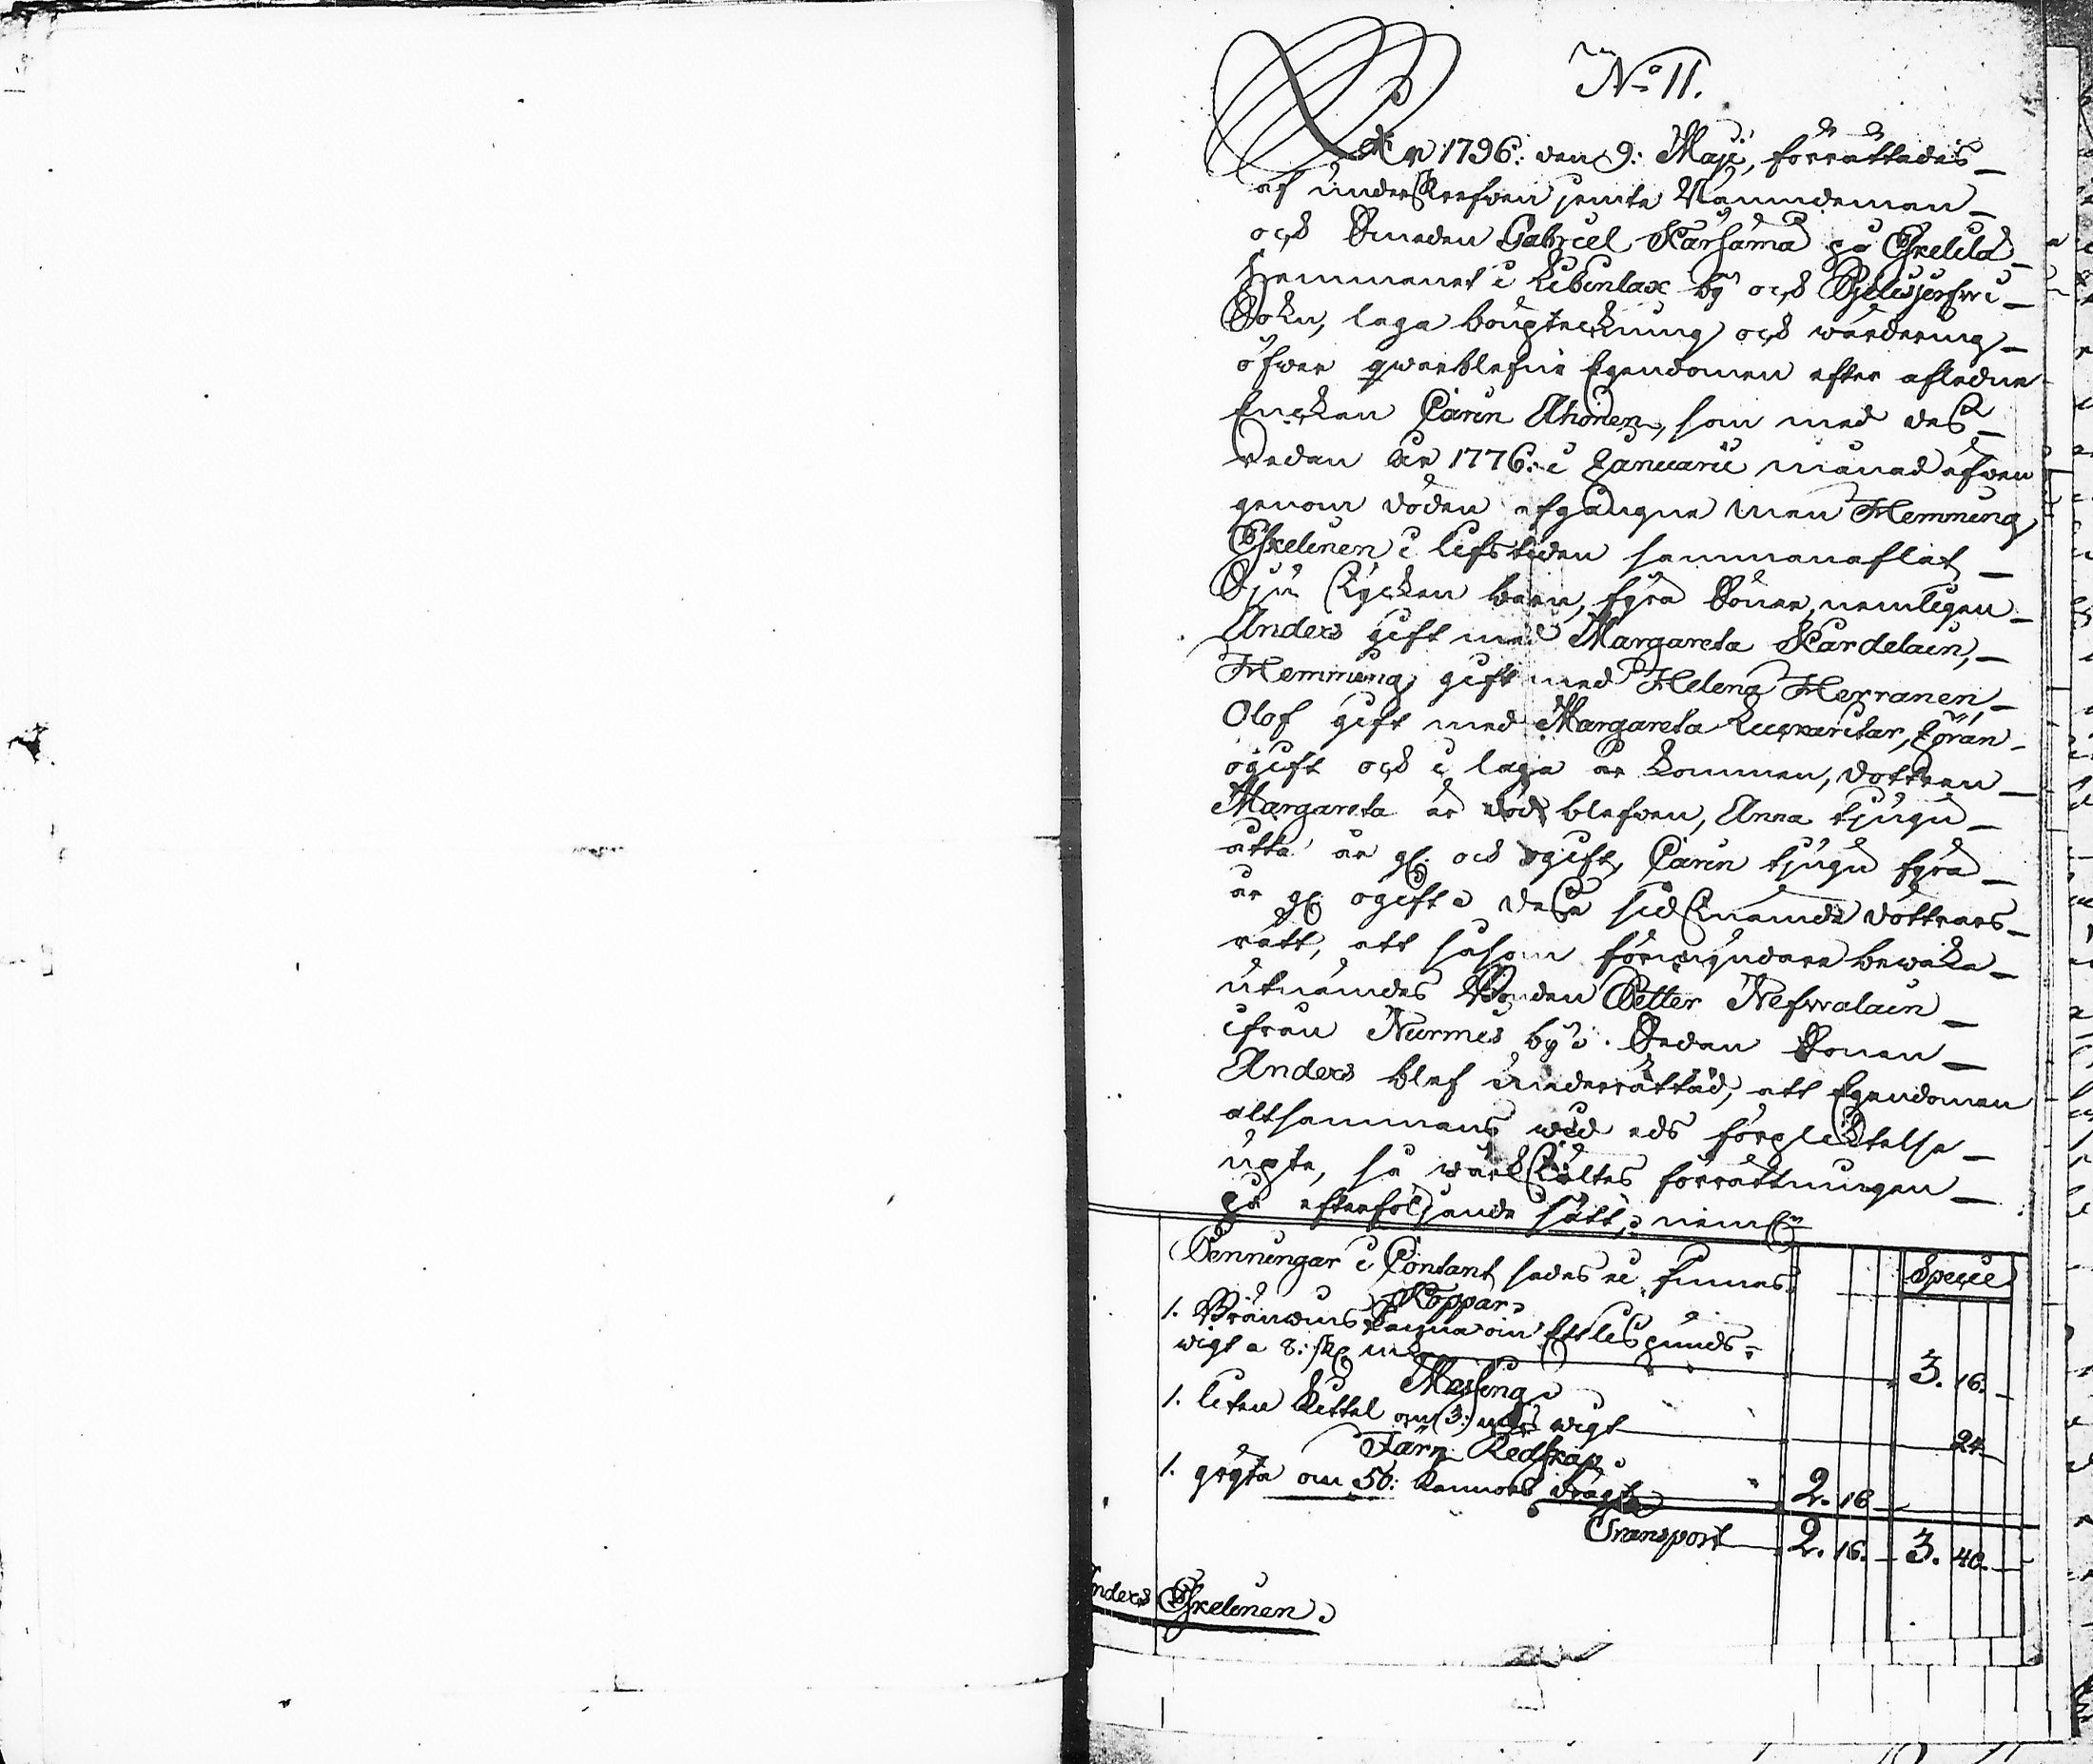 No 11.
År 1796: den 9: Maji, förrättades
af underskrefwen jemte Nämndeman
och Smeden Gabriel Karhama på Eskelilä
Hemmanet i Libinlax by och Pjelisjerfwi
Sokn, laga bouptekning och wärdering
öfwer qwarblefne Egendomen efter afledne
Enckan Carin Ahonen, som med des
redan år 1776: i Januarii månad äfwen
genom döden afgångne man Hemming
Eskelinen i lifstiden sammanaflat
Sju stycken barn, fyra Söner, nemligen
Anders gift med Margareta Kardelain,
Hemming gift med Helena Hexranen
Olof gift med Margareta, Göran
ogift och i laga år kommen, dottren
Margareta är död blefwen, Anna tjugu
åtta år gl. och ogift, Carin tjugu fyra
år gl. ogift desse sidstnämde döttrars
rätt, att såsom förmyndare bewaka
utnämdes Bonden Petter Nefwalain
ifrån Nurmis by. Sedan Sonen
Anders blef underrättad, att Egendomen
altsammans wid eds förpliktelse
upte, så wärkstältes förrättningen
på efterföljande sätt, neml:n
Penningar i Contant sades ei finnas
Specie
Koppar
1. Bränwins Panna om Ett Lispunds
wigt a 8: sk. m 3. 16.
Messing
1. liten Kittel om 3: wigt 24
Järn Redskap
1. gryta om 50: kannors drägt 2. 16
Transport 2. 16. 3. 40.
nders Eskelinen